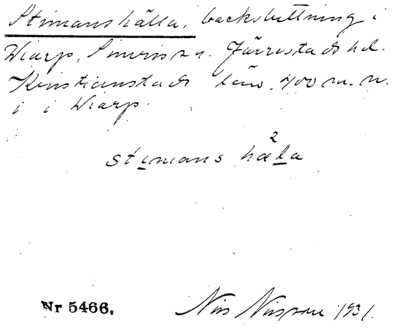 Stimanshälla, backsluttning i
Wiarp, Simris sn. Järrestads hd.
Kristianstads län, 400 m. n.
i i Wiarp.
stimans hæla
2
Nr 5466. Nils Nilsson 1931.